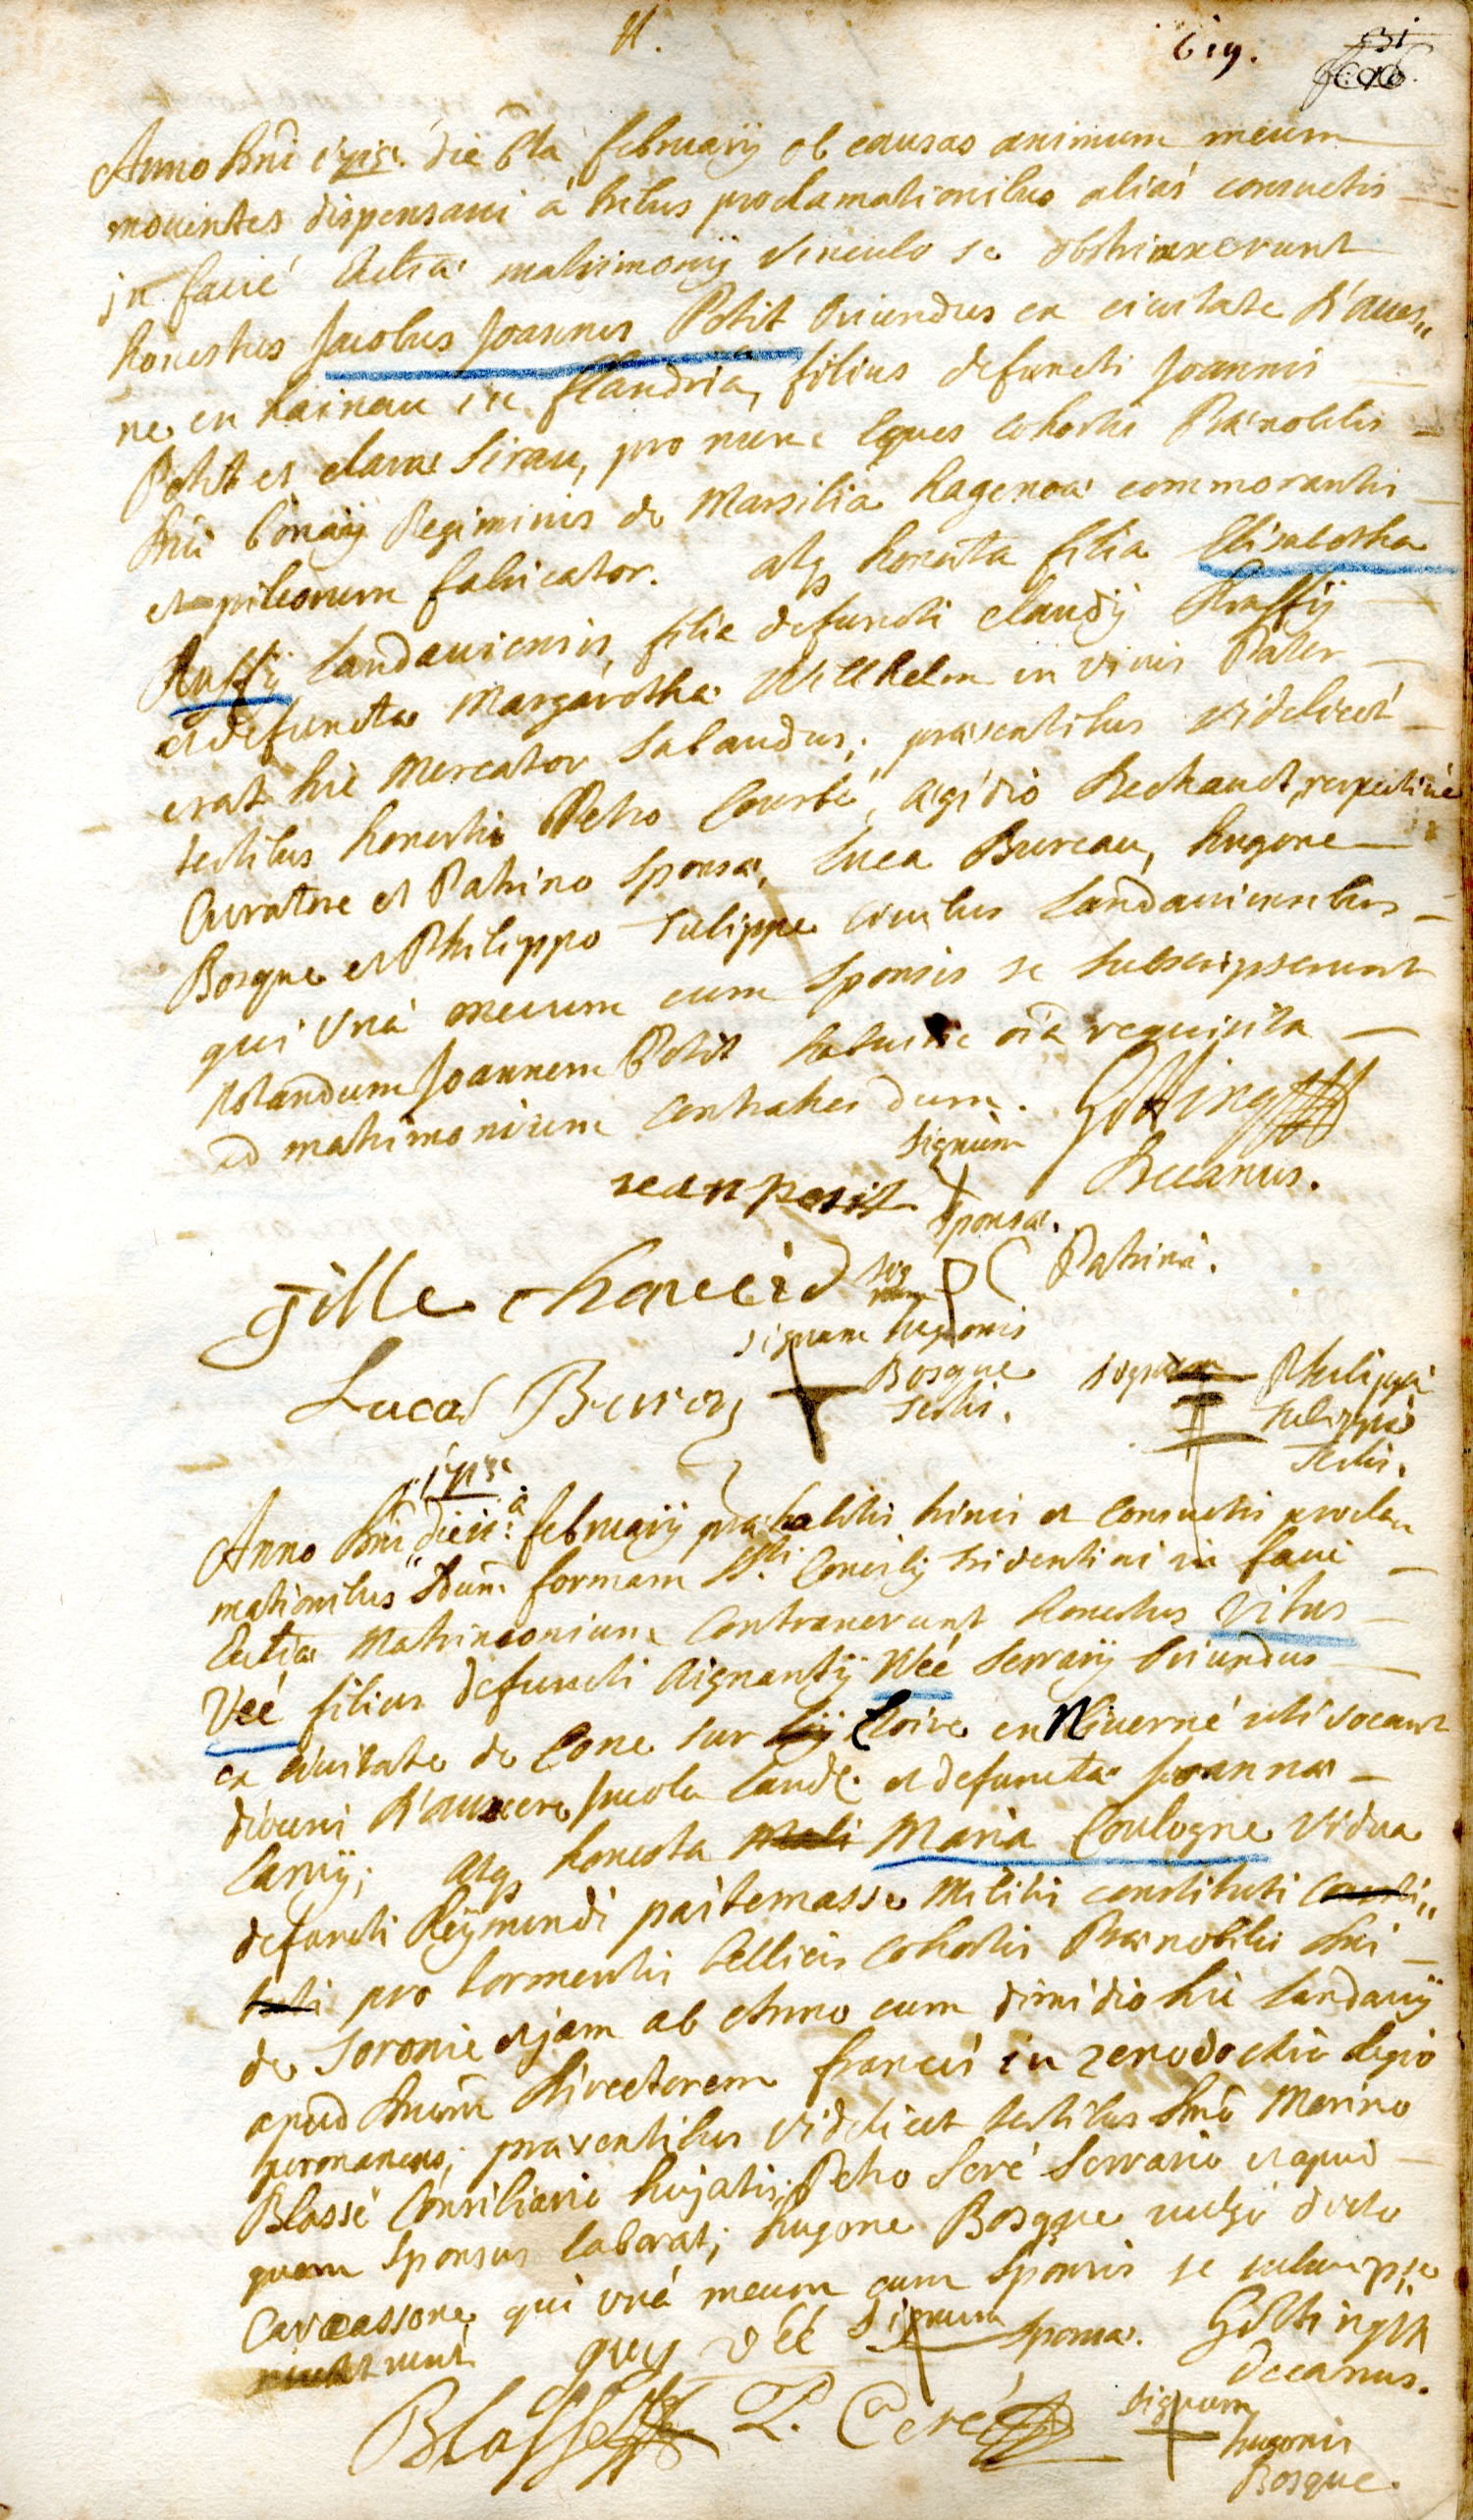 11.
619. 31
Anno Dni 1715. die 6ta february ob causas animum meum
mouentes dispensaui à tribus proclamationibus aliàs consuetis
in facie Ecclia matrimonÿ vinculo se obstrinxerunt
honestus Jacobus Joannes Petit oriundus ex ciuitate d'aues„
ne en hainau in flandria, filius defuncti Joannis
Petit et clara Sirau, pro nunc Eques cohortis Prænobilis
Dni Regiminis de Marsilia hagenoæ commorantis
et pileorum fabricator. atq honesta filia Elisabetha
Ruffÿ Landauiensis, filia defuncti claudÿ Ruffÿ
et defuncta Margaretha Willhelm in viuis Pater
erat hic Mercator Sabaudus; præsentibus videlicet
testibus honestis Petro Courbé, ægidio Bechaud, respectiuè
Curatore et Patrino Sponsæ, Luca Bureau, hugone
Bosque et Philippo Tulippe ciuibus Landauiensibus
qui vnà mecum cum Sponsis se subscripserunt
notandum Joannem Petit habuisse oia requisita
ad matrimonium contrahendum.
Signum Göttingh
Decanus.
jean petit Sponsæ.
gille Sig num Patrini.
Lucas signum hugonis
Bosque
testis.
signum Philippi
Tulippe
testis.
1715.
Anno Dni die 11.a february præhabitis trinis et consuetis procla„
mationibus Sdum formam Ssti. Concilÿ Tridentini in facie
Ecclia Matrimonium contraxerunt honestus Vitus
Veé filius defuncti Aignantÿ Weé Serrarÿ oriundus
ex ciuitate de Cone sur Loire en Niuerné uti vocant
diœcesi d'auxere Incola Land. et defuncta Joanna
Lamÿ; atq honesta Maria Coulogne vidua
defuncti Reÿmundi paitemasse Militis constituti
pro tormentis bellicis cohortis Prænobilis Dni
de Soronie et jam ab Anno cum dimidio hic Landauÿ
apud Dnum Directorem francis in xenodochio Regio
permanens; præsentibus videlicet testibus Dno Marino
Blassé Consiliario hujatis; Petro Seré Serrario et apud
quem Sponsus laborat; hugone Bosque uulgò dicto
Carcassone, qui vnà mecum cum Sponsis se subscripse
runt
guy véé Signum Sponsæ. Göttingh
decanus.
Blasse P. Ceré Signum
hugonis
Bosque.